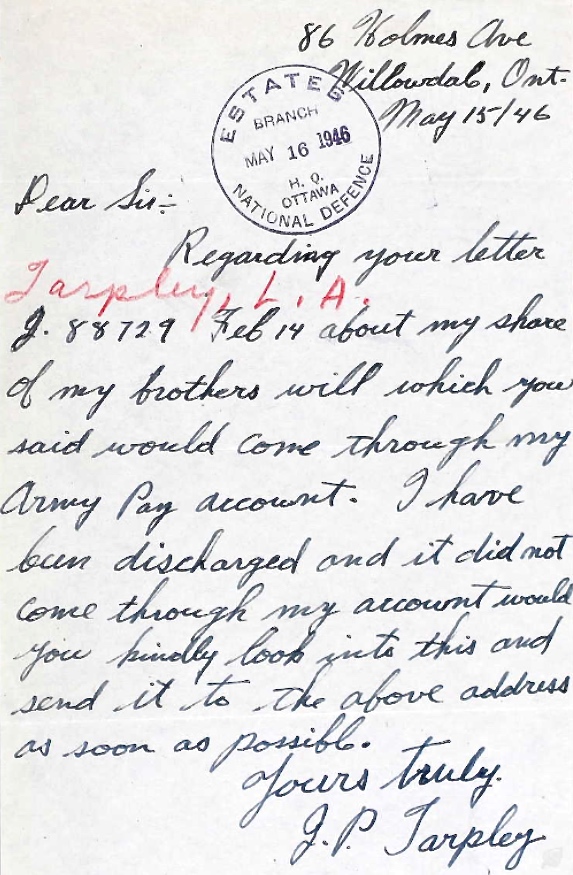 86 Holmes Ave
Willowdale, Ont.
May 15/46
ESTATES
BRANCH
MAY 16 1946
H. Q.
OTTAWA
NATIONAL DEFENCE
Dear Sir:-
Regarding your letter
Tarpley, L. A.
J. 88729 Feb 14 about my share
of my brothers will which you
said would come through my
Army Pay account. I have
been discharged and it did not
come through my account would
you kindly look into this and
send it to the above address
as soon as possible.
Yours truly.
J. P. Tarpley